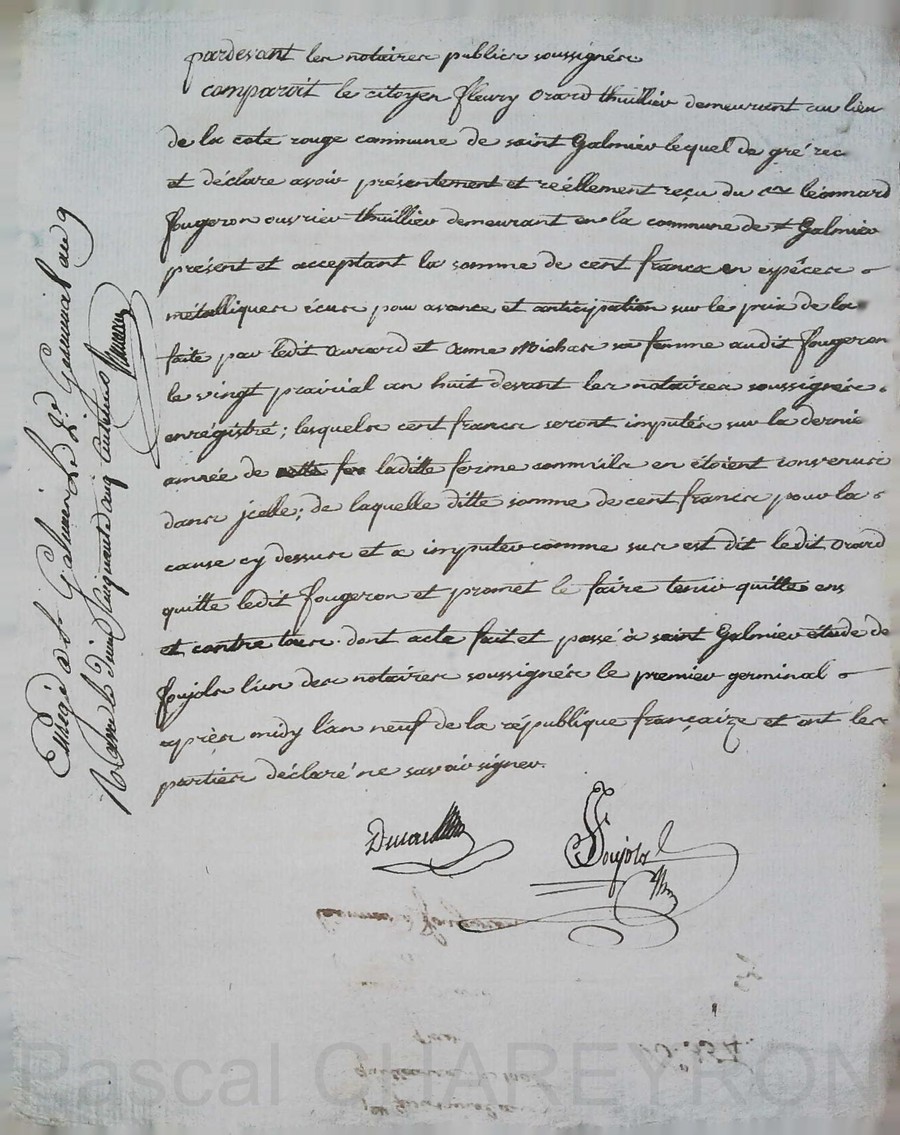 pardevant les notaires publics soussignés
comparoit le citoyen fleury Orard thuillier demeurant au lieu
de la cote rouge commune de saint Galmier lequel de gré rec
et déclare avoir présentement et réellement reçu du cen léonnard
fougeron ouvrier thuillier demeurant en la commune de st Galmier
présent et acceptant la somme de cent francs en espèces
métalliques écus pour avance et anticipation sur le prix de la
faite par ledit Ourard et anne Michas sa femme audit fougeron
le vingt prairial an huit devant les notaires soussignés
enrégistré ; lesquels cent francs seront imputés sur la derniè
année de laditte ferme comm'ils en étoient convenus
dans jcelle ; de laquelle ditte somme de cent francs pour la
cause cy dessus et a imputer comme sus est dit ledit Orard
quitte ledit fougeron et promet le faire tenir quitte ens
et contre tous. dont acte fait et passé à saint Galmier étude de
foujols l'un des notaires soussignés le premier germinal
après midy l'an neuf de la république françaize et ont les
parties déclaré ne savoir signer.
foujols
Enregé à St Galmier le 2d Germinal an 9
Pascal CHAREYRON